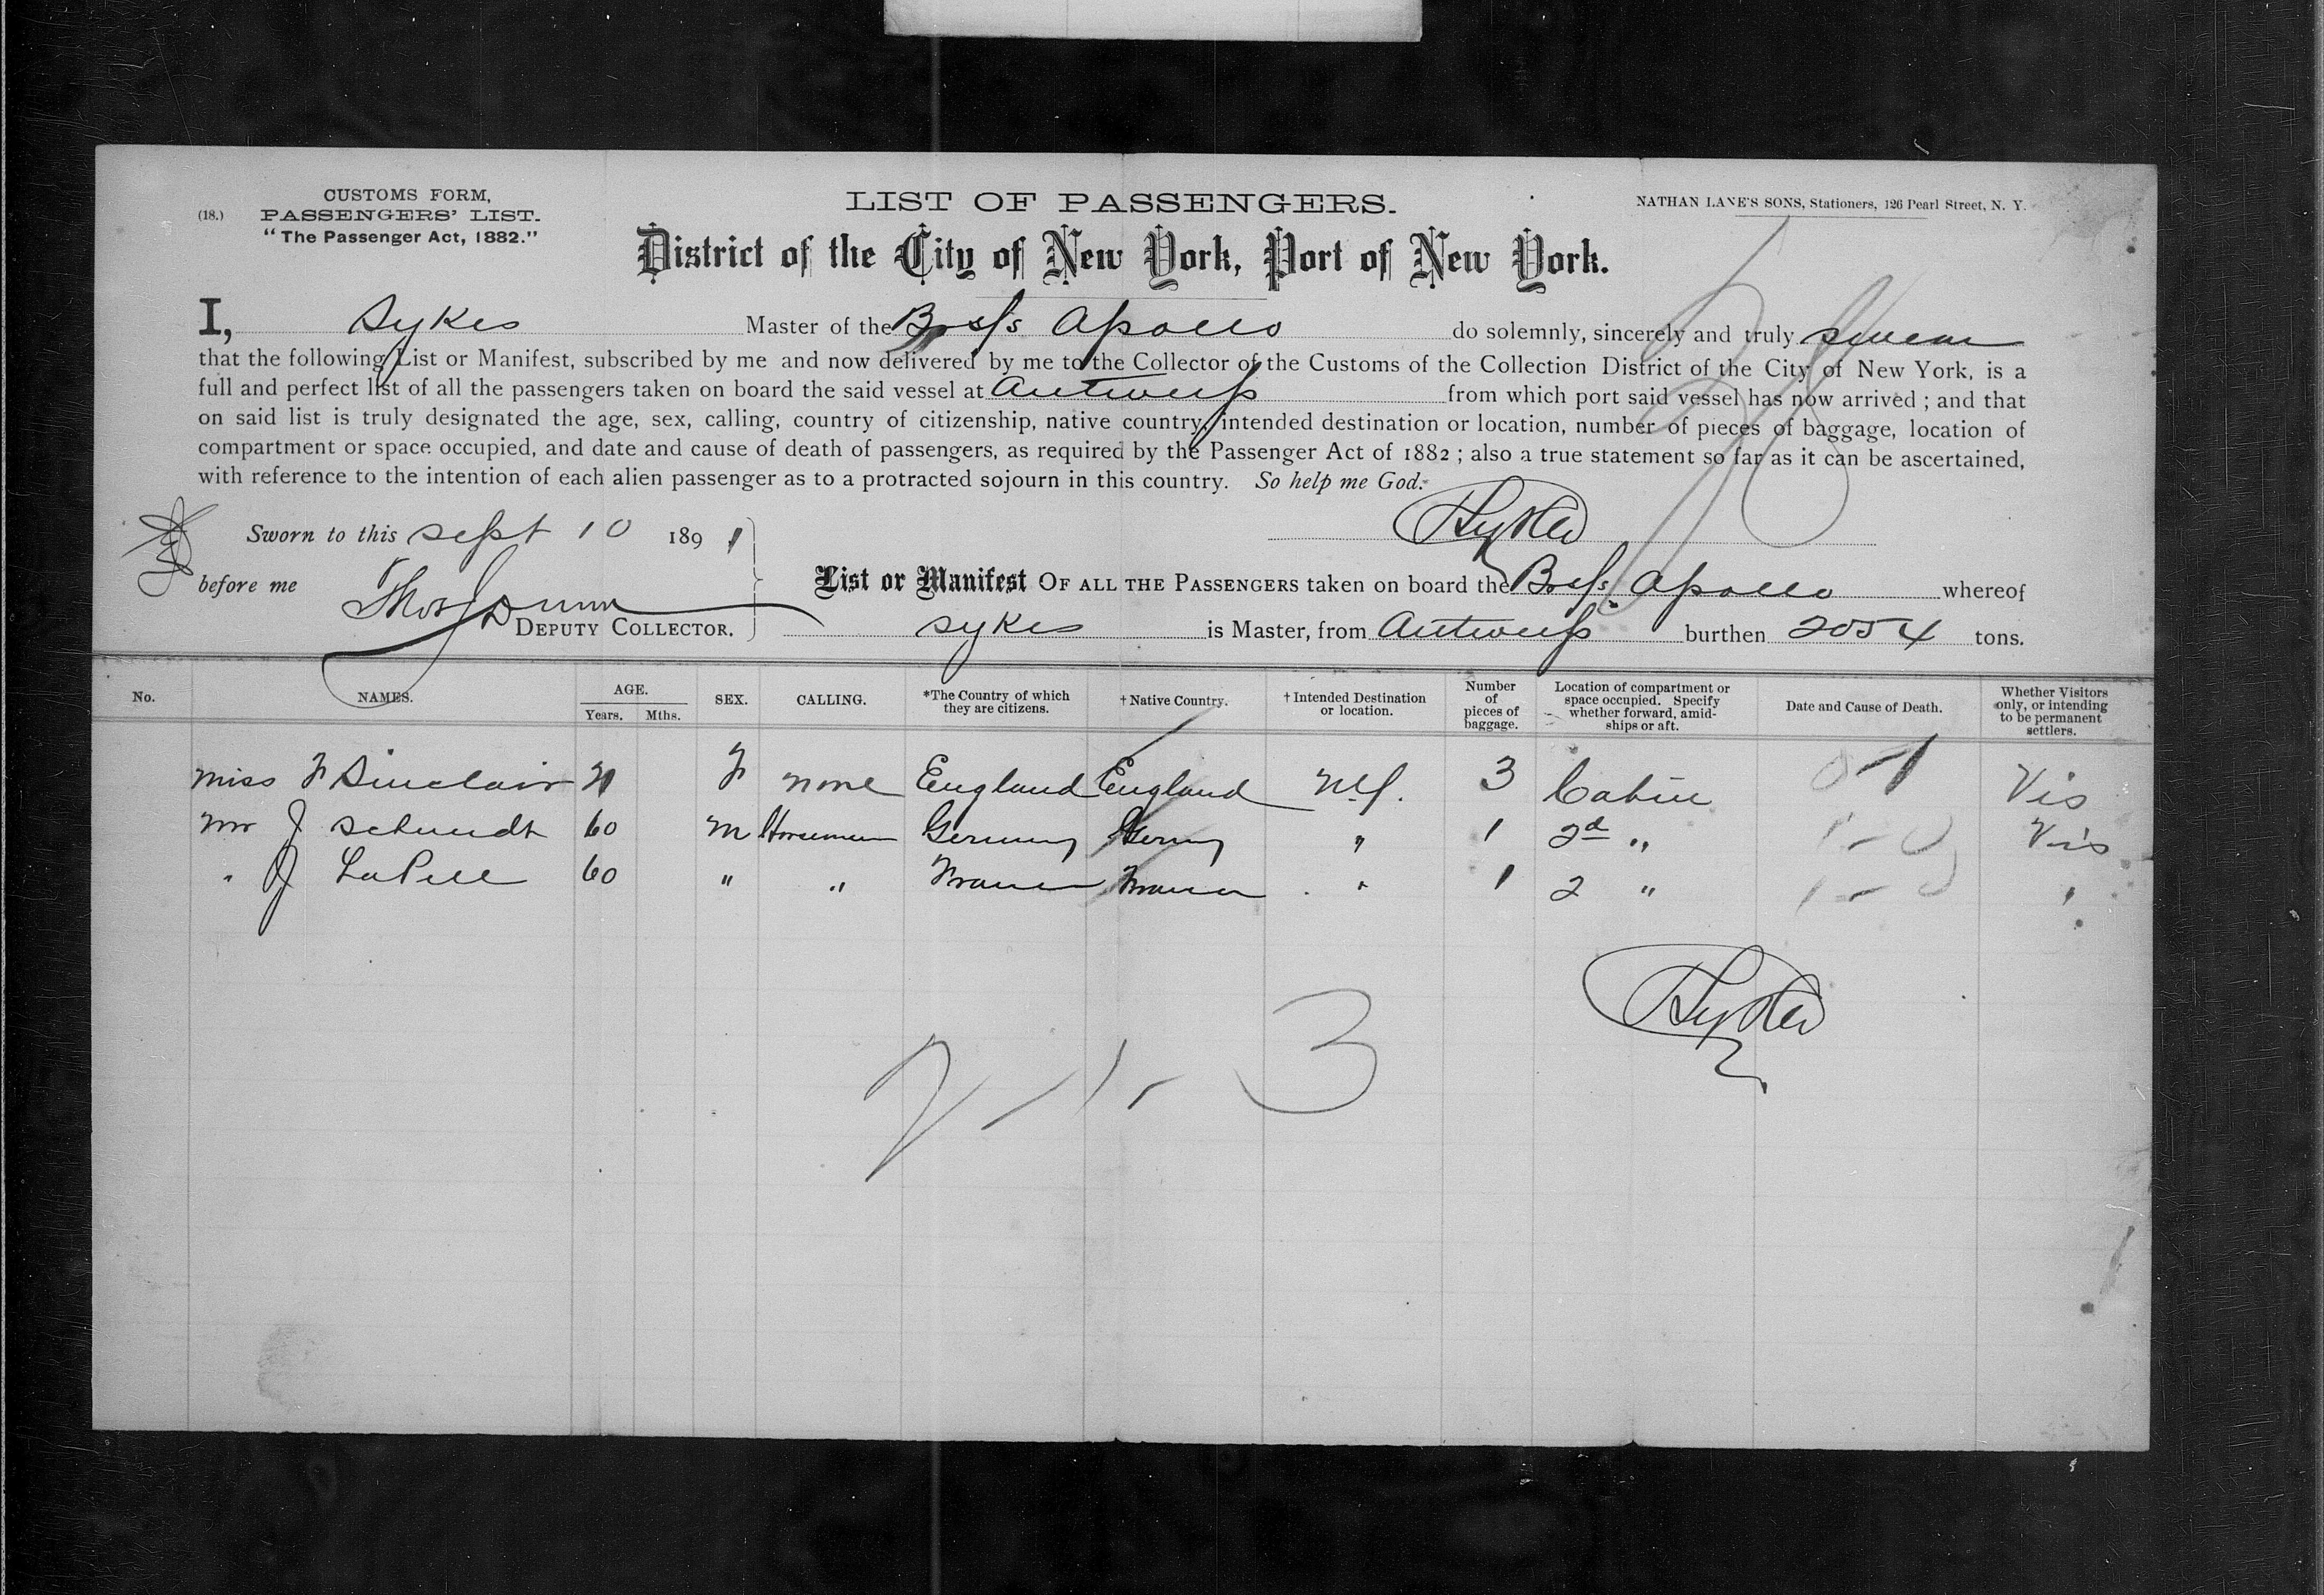 CUSTOMS FORM,
(18.) PASSENGERS' LIST.
"The Passenger Act, 1882."
LIST OF PASSENGERS.
NATHAN LANE'S SONS, Stationers, 126 Pearl Street, N. Y.
District of the City of New York, Port of New York.
I, Sykes Master of the Br s/s Apollo do solemnly, sincerely and truly swear
that the following List or Manifest, subscribed by me and now delivered by me to the Collector of the Customs of the Collection District of the City of New York, is a
full and perfect list of all the passengers taken on board the said vessel at Antwerp from which port said vessel has now arrived; and that
on said list is truly designated the age, sex, calling, country of citizenship, native country, intended destination or location, number of pieces of baggage, location of
compartment or space occupied, and date and cause of death of passengers, as required by the Passenger Act of 1882; also a true statement so far as it can be ascertained,
with reference to the intention of each alien passenger as to a protracted sojourn in this country. So help me God.
Sworn to this Sept 10 1891
HSykes
before me Thos J Dunn
DEPUTY COLLECTOR.
List or Manifest OF ALL THE PASSENGERS taken on board the Br s/s Apollo whereof
Sykes is Master, from Antwerp burthen 2054 tons.
No. NAMES. AGE. Years. Mths. SEX. CALLING. *The Country of which they are citizens. †Native Country. †Intended Destination or location. Number of pieces of baggage. Location of compartment or space occupied. Specify whether forward, amidships or aft. Date and Cause of Death. Whether Visitors only, or intending to be permanent settlers.
Miss F Sinclair 21 F none England England N.Y. 3 Cabin 0-1 Vis
Mr J Schmidt 60 M Horseman Germany Germy " 1 2d " 1-0 Vis
" J LaPell 60 " " France France " 1 2 " 1-0 "
HSykes
2-1-3